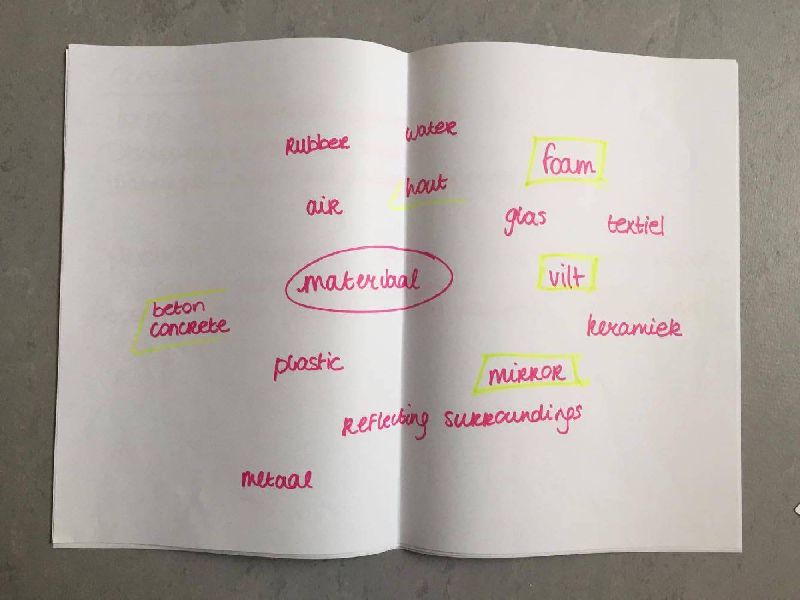 rubber
water
foam
hout
air
glas
textiel
materiaal
vilt
beton
concrete
keramiek
plastic
mirror
reflecting surroundings
metaal